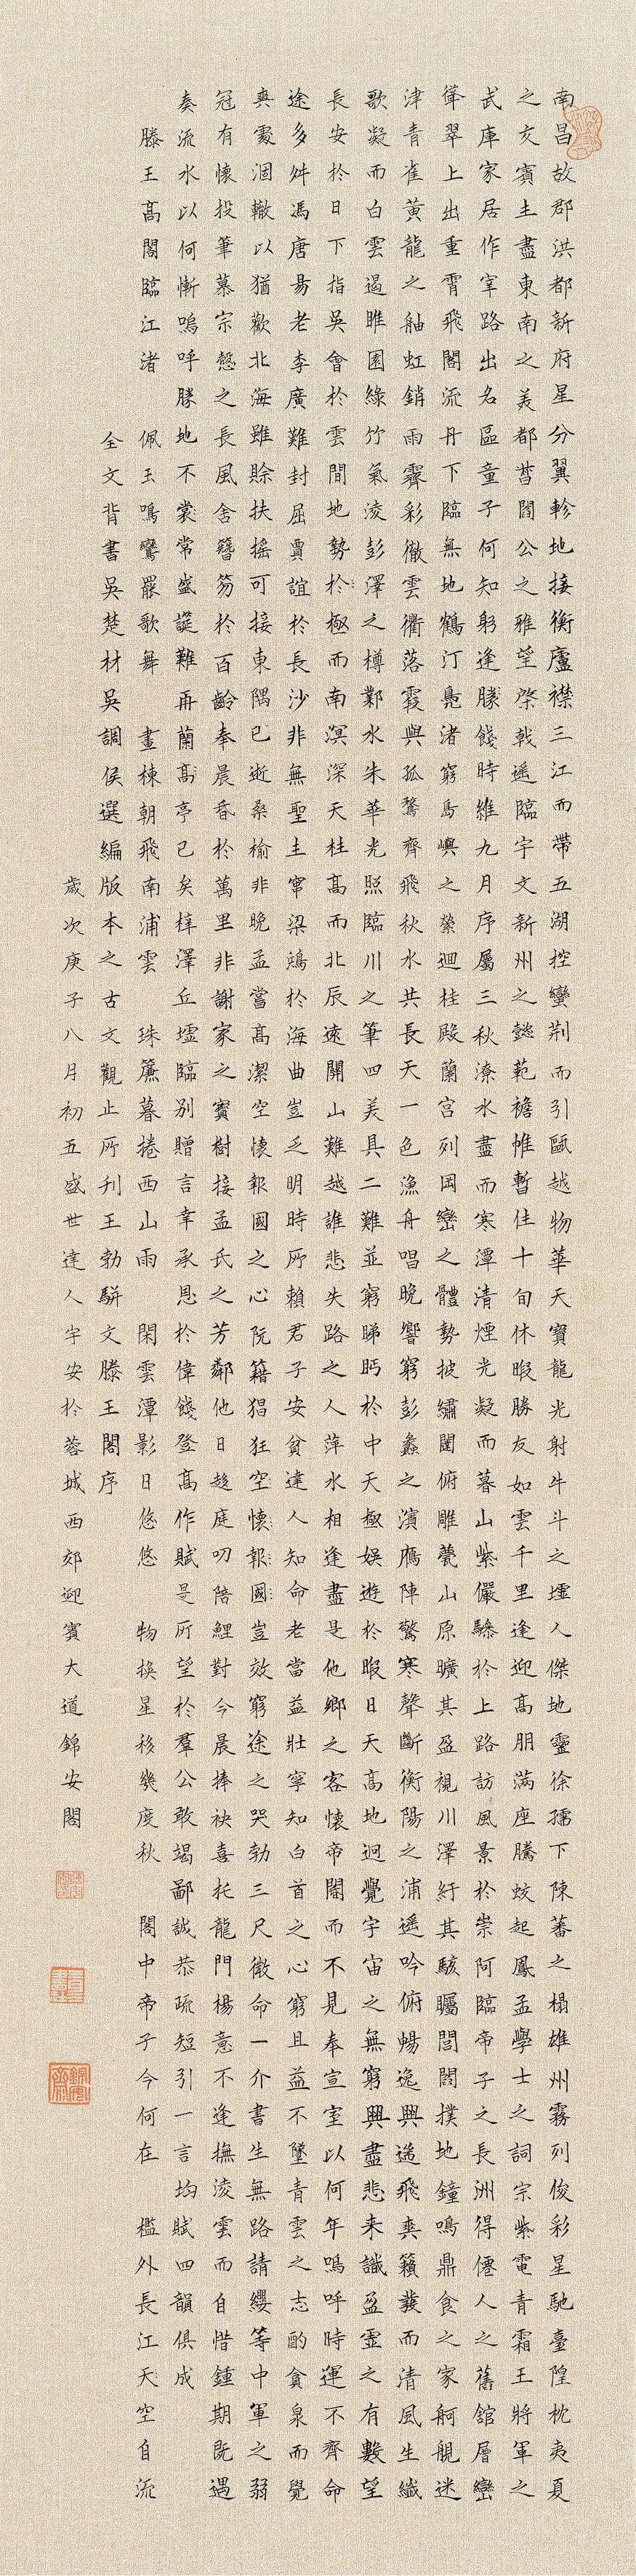 南昌故郡洪都新府星分翼軫地接衡廬襟三江而帶五湖控蠻荊而引甌越物華天寶龍光射牛斗之墟人傑地靈徐孺下陳蕃之榻雄州霧列俊彩星馳臺隍枕夷夏
之交賓主盡東南之美都督閻公之雅望棨戟遙臨宇文新州之懿範襜帷暫住十旬休暇勝友如雲千里逢迎高朋滿座騰蛟起鳳孟學士之詞宗紫電青霜王將軍之
武庫家居作宰路出名區童子何知躬逢勝餞時維九月序屬三秋潦水盡而寒潭清煙光凝而暮山紫儼驂於上路訪風景於崇阿臨帝子之長洲得僊人之舊館層巒
聳翠上出重霄飛閣流丹下臨無地鶴汀鳧渚窮島嶼之縈迴桂殿蘭宮列岡巒之體勢披繡闥俯雕甍山原曠其盈視川澤紆其駭矚閭閻撲地鐘鳴鼎食之家舸艦迷
津青雀黃龍之舳虹銷雨霽彩徹雲衢落霞與孤鶩齊飛秋水共長天一色漁舟唱晚響窮彭蠡之濱雁陣驚寒聲斷衡陽之浦遙吟俯暢逸興遄飛爽籟發而清風生纖
歌凝而白雲遏睢園綠竹氣凌彭澤之樽鄴水朱華光照臨川之筆四美具二難並窮睇眄於中天極娛遊於暇日天高地迥覺宇宙之無窮興盡悲來識盈虛之有數望
長安於日下指吳會於雲間地勢於極而南溟深天柱高而北辰遠關山難越誰悲失路之人萍水相逢盡是他鄉之客懷帝閽而不見奉宣室以何年嗚呼時運不齊命
途多舛馮唐易老李廣難封屈賈誼於長沙非無聖主竄梁鴻於海曲豈乏明時所賴君子安貧達人知命老當益壯寧知白首之心窮且益不墜青雲之志酌貪泉而覺
爽處涸轍以猶歡北海雖賒扶搖可接東隅已逝桑榆非晚孟嘗高潔空懷報國之心阮籍猖狂空懷報國豈效窮途之哭勃三尺微命一介書生無路請纓等中軍之弱
冠有懷投筆慕宗愨之長風舍簪笏於百齡奉晨昏於萬里非謝家之寶樹接孟氏之芳鄰他日趨庭叨陪鯉對今晨捧袂喜托龍門楊意不逢撫凌雲而自惜鍾期既遇
奏流水以何慚嗚呼勝地不裳常盛筵難再蘭高亭已矣梓澤丘墟臨別贈言幸承恩於偉餞登高作賦是所望於羣公敢竭鄙誠恭疏短引一言均賦四韻俱成
滕王高閣臨江渚 佩玉鳴鸞罷歌舞 畫棟朝飛南浦雲 珠簾暮捲西山雨 閑雲潭影日悠悠 物換星移幾度秋 閣中帝子今何在 檻外長江天空自流
全文背書吳楚材吳調侯選編版本之古文觀止所刊王勃駢文滕王閣序
歲次庚子八月初五盛世達人宇安於蓉城西郊迎賓大道錦安閣